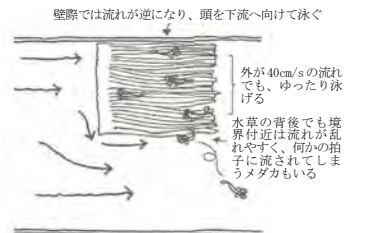 壁際では流れが逆になり、頭を下流へ向けて泳ぐ
外が40cm/sの流れ
でも、ゆったり泳
げる
水草の背後でも境
界付近は流れが乱
れやすく、何かの拍
子に流されてしま
うメダカもいる